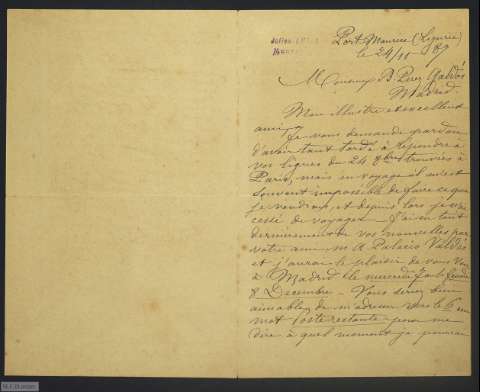 Port Maurice (Ligurie)
le 24/11 87
Monsieur B. Perez Galdós
Madrid.
Mon illustre et excellent
ami,
Je vous demande pardon
d'avoir tant tardé à répondre à
vos lignes du 24 8bre trouvées à
Paris, mais en voyage il m'est
souvent impossible de faire ce que
je voudrais, et depuis lors je n'ai
cessé de voyager. J'ai eu tout
dernièrement de vos nouvelles par
votre ami Mr A. Palacio Valdés
et j'aurai le plaisir de vous voir
à Madrid le mercredi 7 ou le jeudi
8 Décembre. Vous seriez bien
aimable de m'adresser vers le 6 un
mot Poste restante pour me
dire à quel moment je pourrai